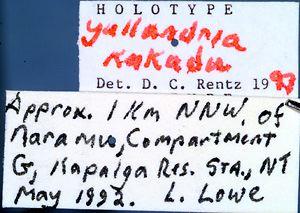 HOLOTYPE
Yullandria
kakadu
Det. D. C. Rentz 1993
Approx. 1 Km NNW. of
Naramu, Compartment
G, Kapalga Res. STA., NT
May 1992. L. Lowe